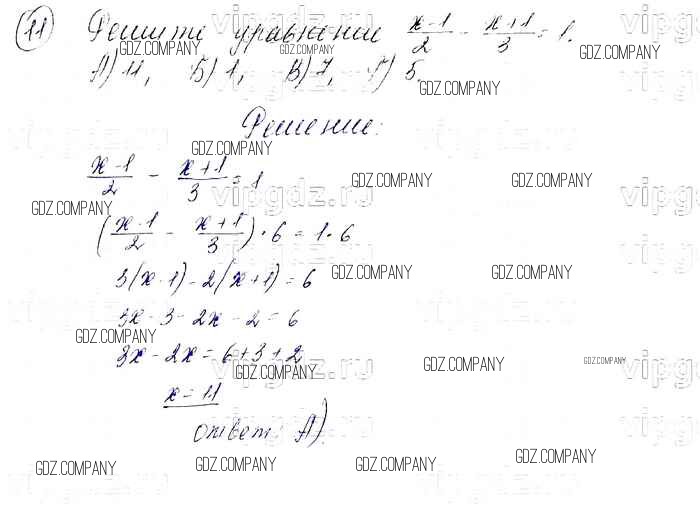 11 Решите уравнение x-1/2 - x+1/3 = 1.
GDZ.COMPANY GDZ.COMPANY GDZ.COMPANY
А) 11, Б) 1, В) 7, Г) 5.
GDZ.COMPANY
vipgdz.ru
Решение:
GDZ.COMPANY
x-1/2 - x+1/3 = 1
GDZ.COMPANY GDZ.COMPANY
vipgdz.ru
GDZ.COMPANY
(x-1/2 - x+1/3) · 6 = 1 · 6
3(x-1) - 2(x+1) = 6
GDZ.COMPANY GDZ.COMPANY
3x - 3 - 2x - 2 = 6
GDZ.COMPANY
3x - 2x = 6 + 3 + 2
GDZ.COMPANY GDZ.COMPANY GDZ.COMPANY
vipgdz.ru
x = 11
ответ: А)
GDZ.COMPANY GDZ.COMPANY GDZ.COMPANY GDZ.COMPANY